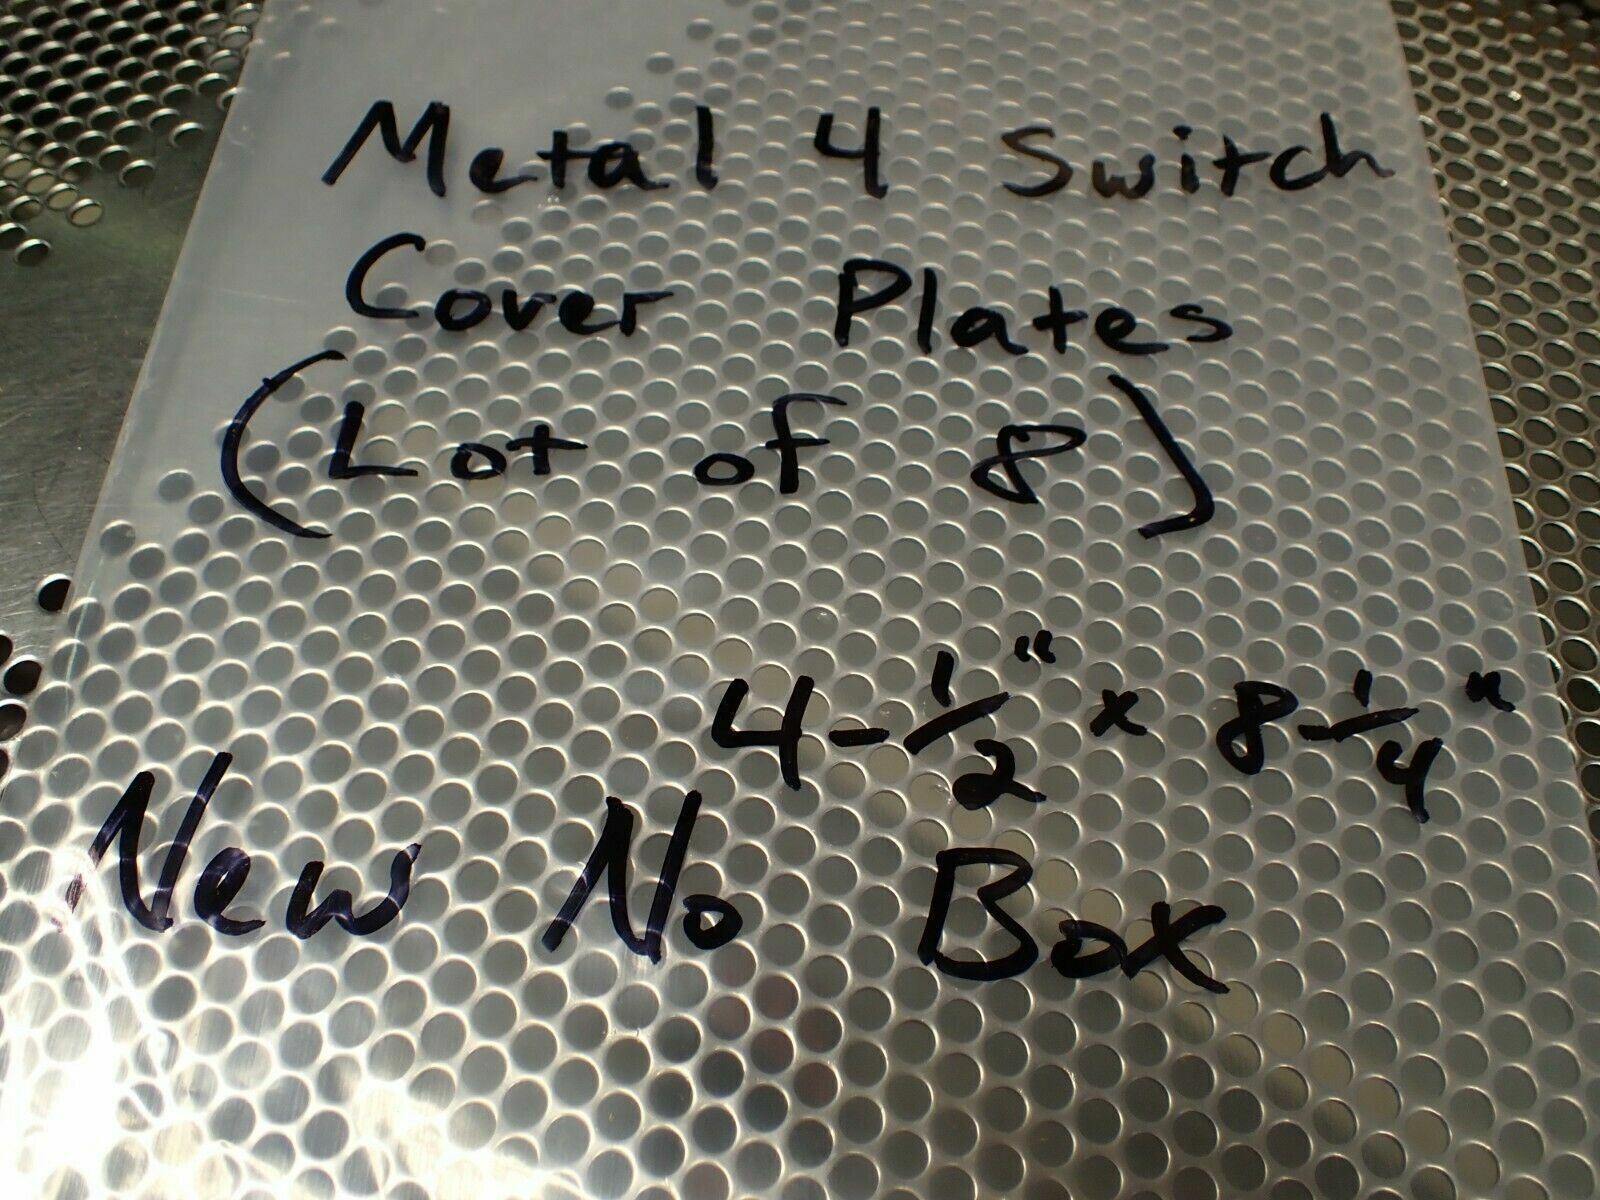 Metal 4 Switch
Cover Plates
(Lot of 8)
4-1/2" x 8-1/4"
New No Box